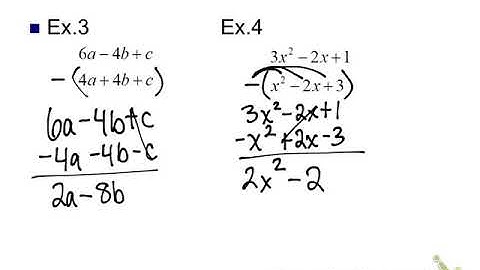 Ex.3
6a − 4b + c
− (4a + 4b + c)
6a − 4b + c
− 4a − 4b − c
2a − 8b
Ex.4
3x² − 2x + 1
− (x² − 2x + 3)
3x² − 2x + 1
− x² + 2x − 3
2x² − 2